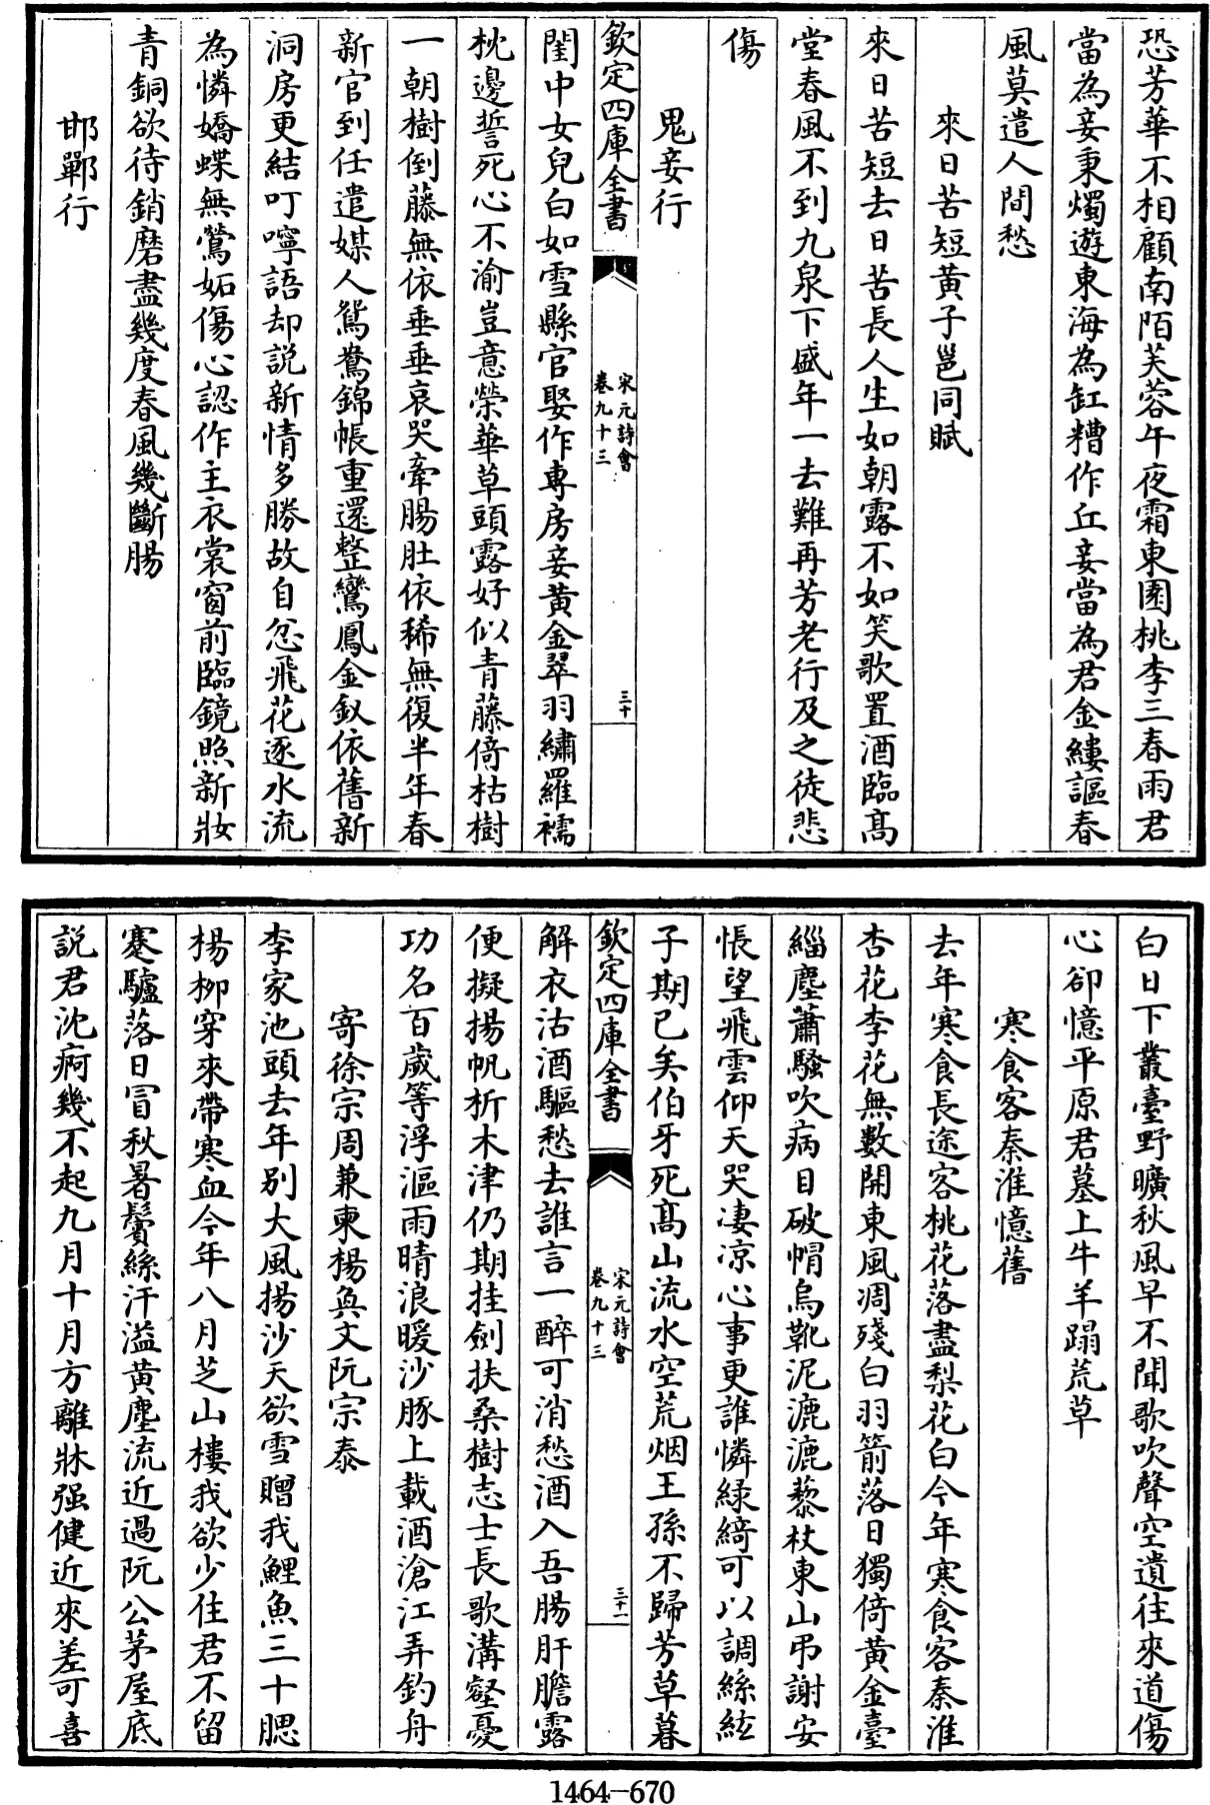 恐芳華不相顧南陌芙蓉午夜霜東園桃李三春雨君
當為妾秉燭遊東海為缸糟作丘妾當為君金縷謳春
風莫遣人間愁
來日苦短黃子邕同賦
來日苦短去日苦長人生如朝露不如笑歌置酒臨高
堂春風不到九泉下盛年一去難再芳老行及之徒悲
傷
鬼妾行
欽定四庫全書
宋元詩會
卷九十三
三十
閨中女兒白如雪縣官娶作專房妾黃金翠羽繡羅襦
枕邊誓死心不渝豈意榮華草頭露好似青藤倚枯樹
一朝樹倒藤無依垂垂哀哭牽腸肚依稀無復半年春
新官到任遣媒人鴛鴦錦帳重還整鸞鳳金釵依舊新
洞房更結叮嚀語却説新情多勝故自忿飛花逐水流
為憐嬌蝶無鶯妬傷心認作主衣裳窗前臨鏡照新妝
青銅欲待銷磨盡幾度春風幾斷腸
邯鄲行
白日下叢臺野曠秋風早不聞歌吹聲空遺往來道傷
心卻憶平原君墓上牛羊蹋荒草
寒食客秦淮憶舊
去年寒食長途客桃花落盡梨花白今年寒食客秦淮
杏花李花無數開東風凋殘白羽箭落日獨倚黃金臺
緇塵蕭騷吹病目破帽烏靴泥漉漉藜杖東山弔謝安
悵望飛雲仰天哭凄凉心事更誰憐緑綺可以調絲絃
子期已矣伯牙死髙山流水空荒烟王孫不歸芳草暮
欽定四庫全書
宋元詩會
卷九十三
三十一
解衣沽酒驅愁去誰言一醉可消愁酒入吾腸肝膽露
便擬揚帆析木津仍期挂劍扶桑樹志士長歌溝壑憂
功名百歲等浮漚雨晴浪暖沙豚上載酒滄江弄釣舟
寄徐宗周兼柬楊奐文阮宗泰
李家池頭去年別大風揚沙天欲雪贈我鯉魚三十腮
楊栁穿來帶寒血今年八月芝山樓我欲少住君不留
蹇驢落日冒秋暑鬢絲汗溢黃塵流近過阮公茅屋底
説君沈痾幾不起九月十月方離牀强健近來差可喜
1464—670